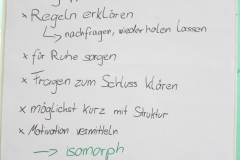 x Regeln erklären
↳ nachfragen, wiederholen lassen
x für Ruhe sorgen
x Fragen zum Schluss klären
x möglichst kurz mit Struktur
x Motivation vermitteln
→ isomorph